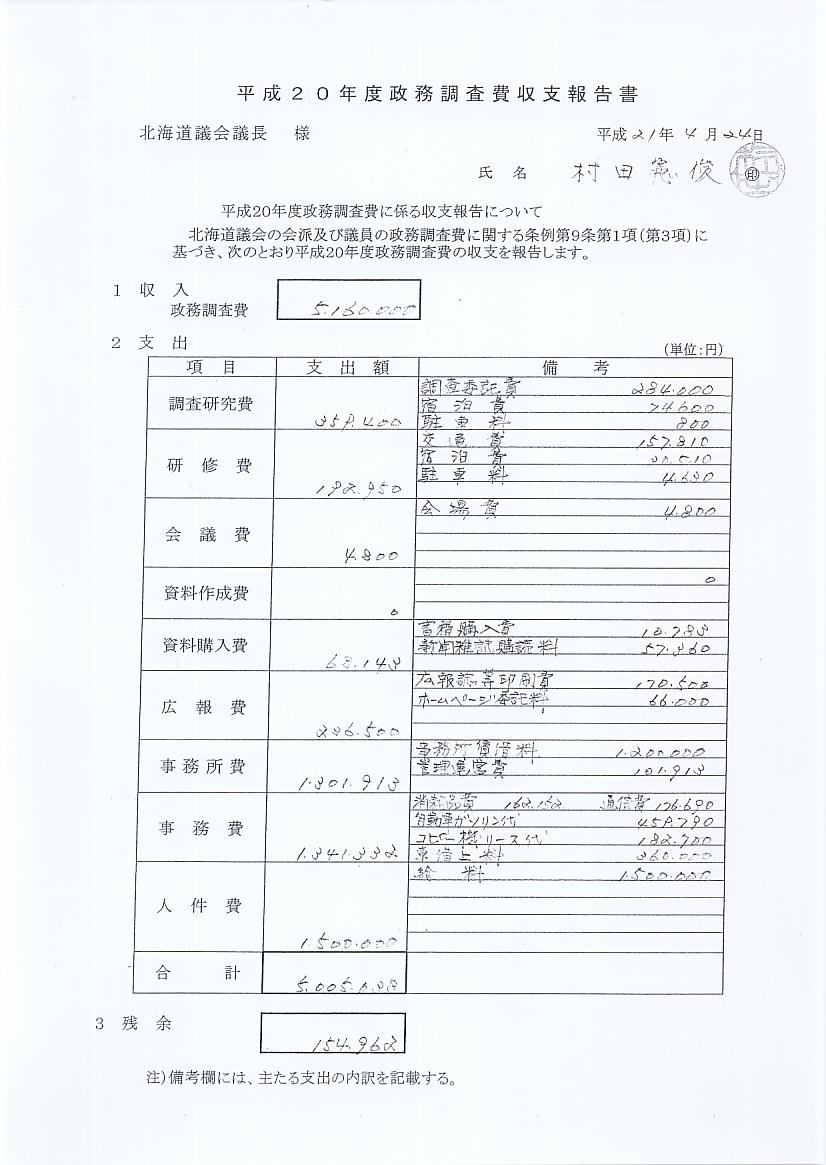 平成２０年度政務調査費収支報告書
北海道議会議長　様
平成21年4月24日
氏 名　村田憲俊 ㊞
平成20年度政務調査費に係る収支報告について
北海道議会の会派及び議員の政務調査費に関する条例第9条第1項(第3項)に
基づき、次のとおり平成20年度政務調査費の収支を報告します。
1 収 入
政務調査費　5.160.000
2 支 出
(単位:円)
項 目　支 出 額　備 考
調査研究費　359.400　調査委託費 284.000
宿泊費 74.600
駐車料 800
研 修 費　192.950　交通費 157.810
宿泊費 30.510
駐車料 4.630
会 議 費　4.800　会場費 4.800
資料作成費　0　0
資料購入費　68.143　書籍購入費 10.783
新聞雑誌購読料 57.360
広 報 費　236.500　広報誌等印刷費 170.500
ホームページ委託料 66.000
事務所費　1.301.913　事務所賃借料 1.200.000
管理運営費 101.913
事 務 費　1.341.332　消耗品費 162.152 通信費 176.690
自動車ガソリン代 459.790
コピー機リース代 182.700
車借上料 360.000
人 件 費　1.500.000　給 料 1.500.000
合 計　5.005.038
3 残 余　154.962
注)備考欄には、主たる支出の内訳を記載する。